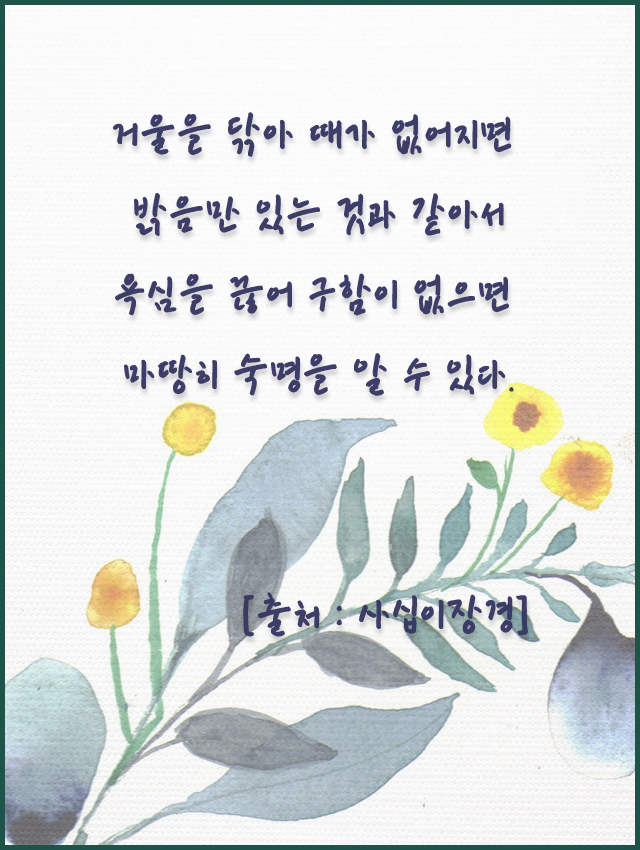 거울을 닦아 때가 없어지면
밝음만 있는 것과 같아서
욕심을 끊어 구함이 없으면
마땅히 숙명을 알 수 있다.
[출처 : 사십이장경]